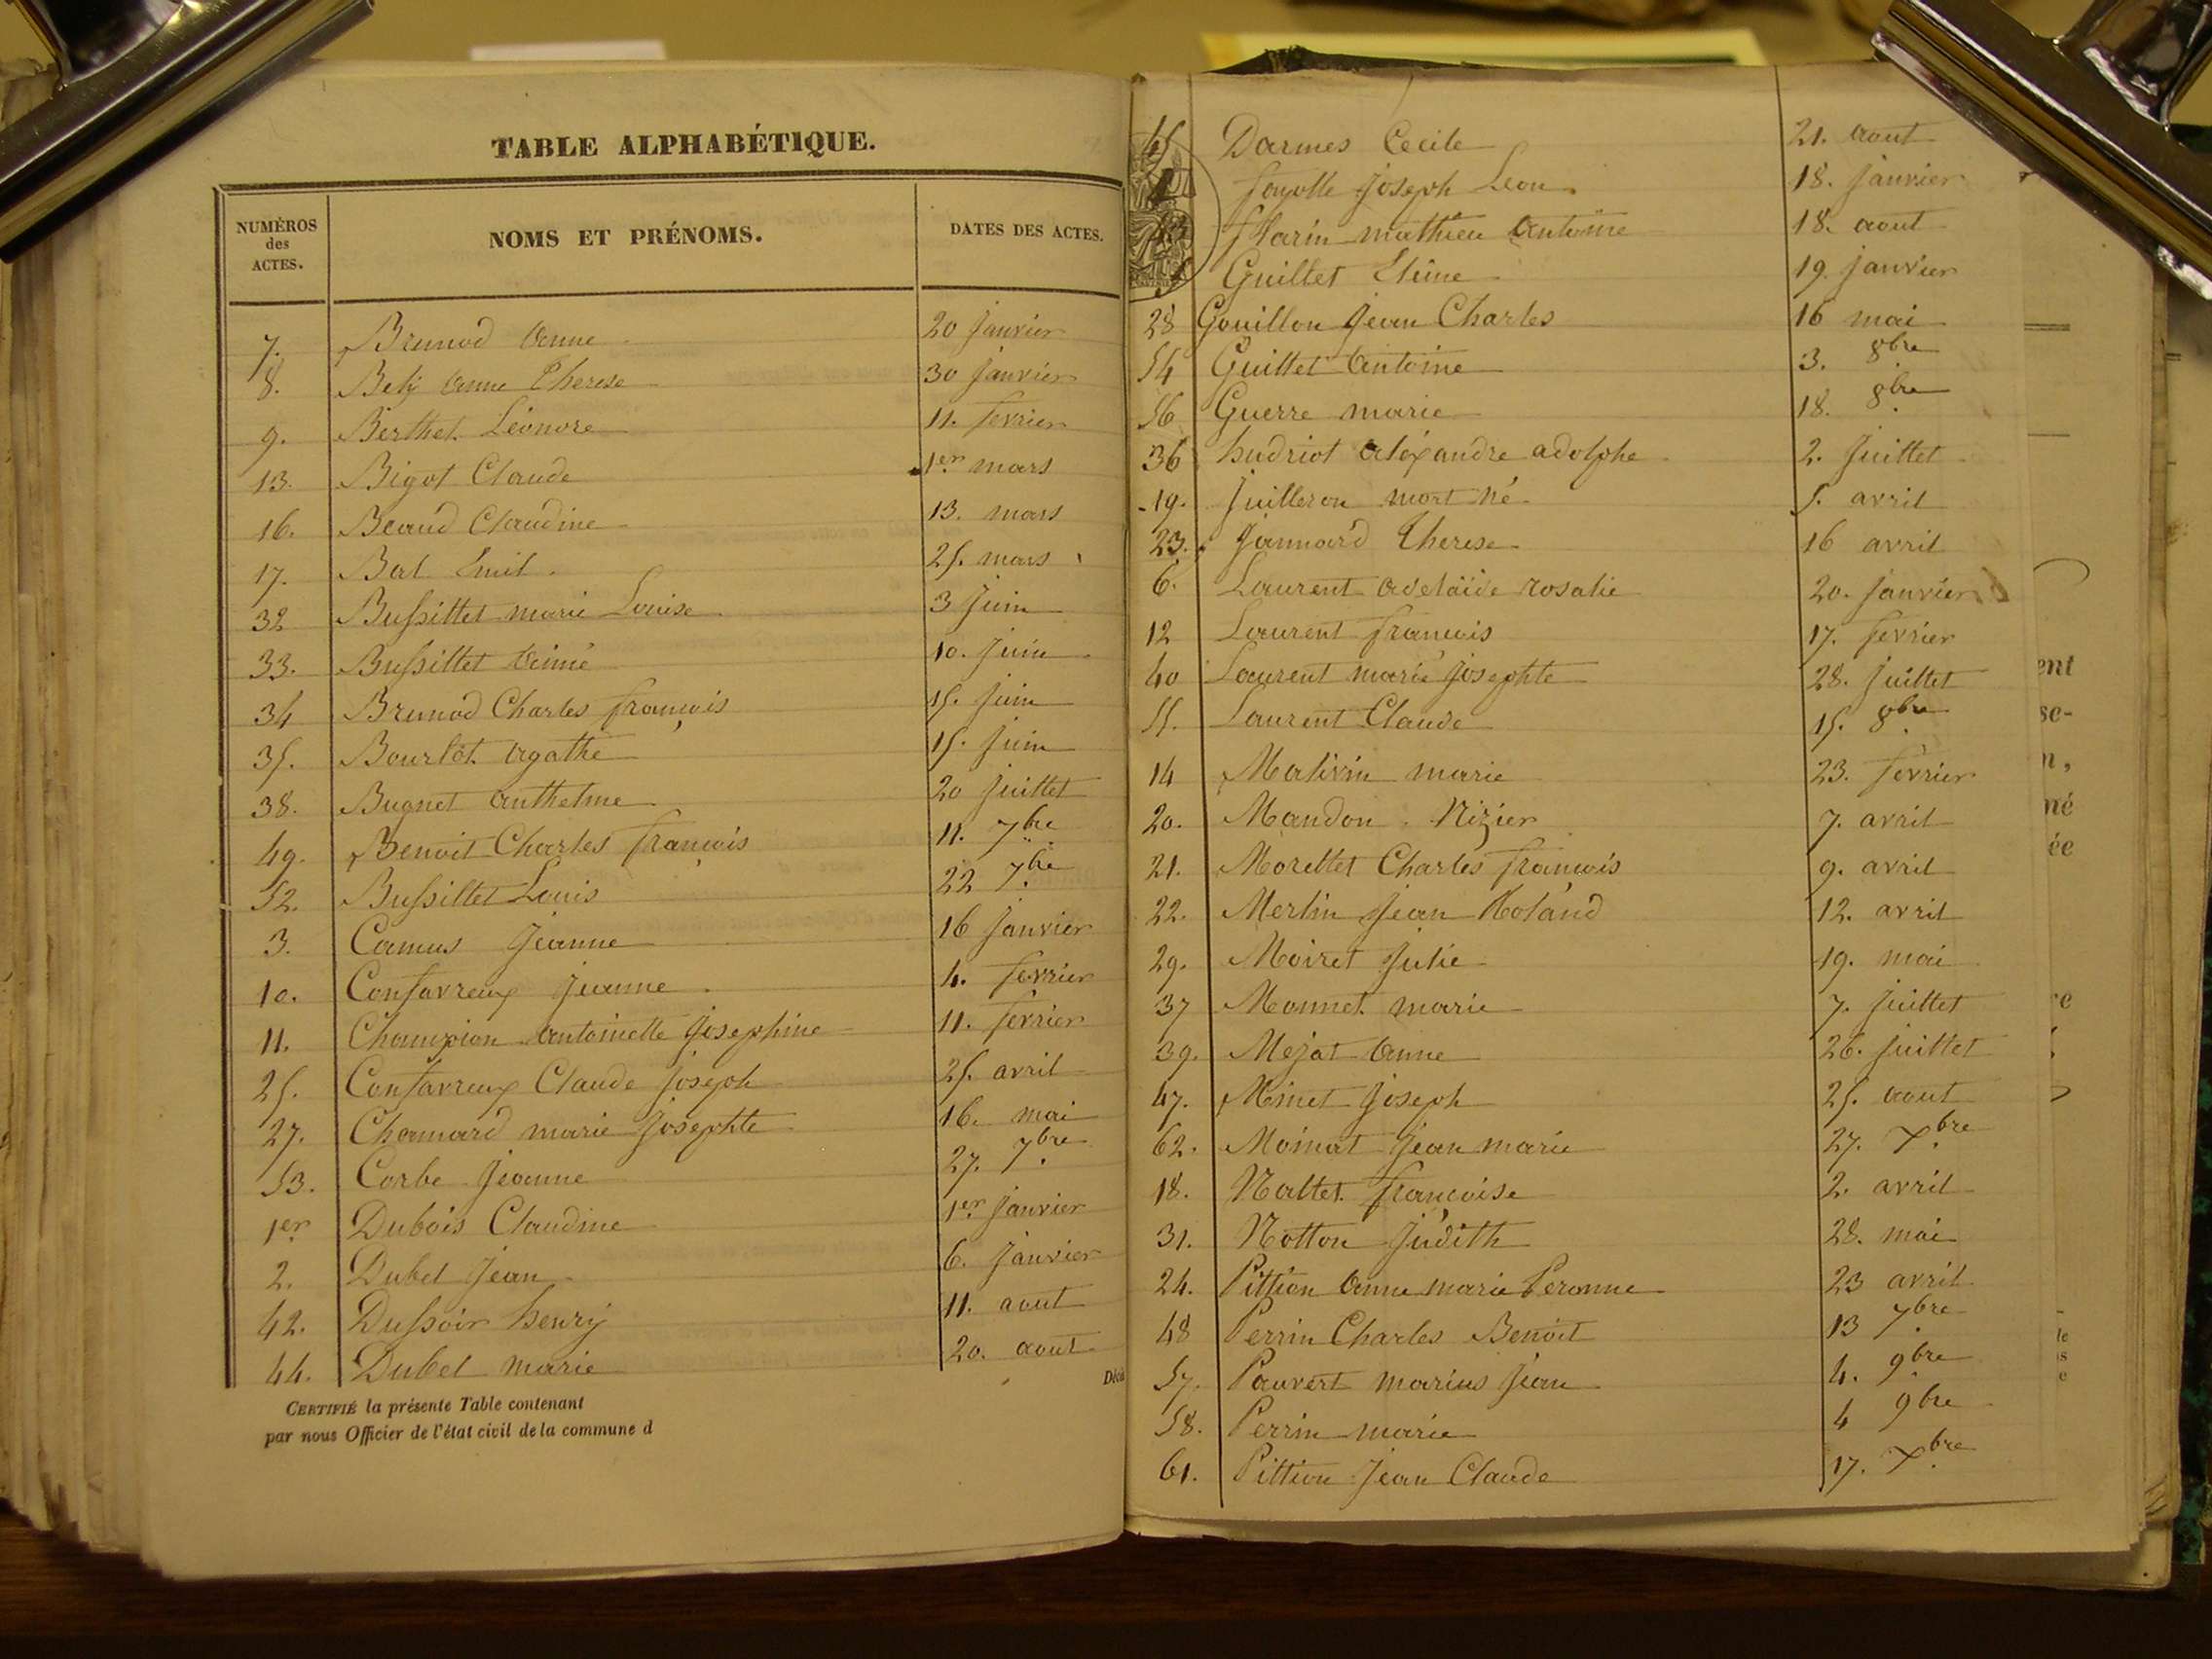 TABLE ALPHABÉTIQUE.
NUMÉROS des ACTES. NOMS ET PRÉNOMS. DATES DES ACTES.
7. Brunod Anne 20 Janvier
8. Bely Anne Therese 30 Janvier
9. Berthet Léonore 11. fevrier
13. Bigot Claude 1er mars
16. Beaud Claudine 13. mars
17. Bal Emil 25. mars
32 Bussillet marie Louise 3 Juin
33. Bussillet Aimé 10. Juin
34 Brunod Charles françois 15. Juin
35. Bourlot Agathe 15. Juin
38. Bugnet Anthelme 20 Juillet
49. Benoit Charles françois 11. 7bre
52. Bussillet Louis 22 7bre
3. Camus Jeanne 16 Janvier
10. Confavreux Jeanne 4. fevrier
11. Champion Antoinette Josephine 11. fevrier
25. Confavreux Claude Joseph 25. avril
27. Chamard marie Josephte 16. mai
53. Corbe Jeanne 27. 7bre
1er Dubois Claudine 1er Janvier
2. Dubel Jean 6. Janvier
42. Dussoir henry 11. aout
44. Dubel marie 20. aout
CERTIFIÉ la présente Table contenant
par nous Officier de l'état civil de la commune d
45 Darmes Cecile 21. aout
fayolle Joseph Leon 18. Janvier
mathieu Antoine 18. aout
5 Guillet 19. Janvier
28 Gouillon Jean Charles 16 mai
54 Guillet Antoine 3. 8bre
56 Guerre marie 18. 8bre
36 hudriot Aléxandre adolphe 2. Juillet
19. Juilleron mort né 5. avril
23. Jannard Therese 16 avril
6. Laurent Adelaïde rosalie 20. Janvier
12 Laurent francois 17. fevrier
40 Laurent marie Josephte 28. Juillet
55. Laurent Claude 15. 8bre
14 Malivin marie 23. fevrier
20. Mandon Nizier 7. avril
21. Morellet Charles françois 9. avril
22. Merlin Jean Roland 12. avril
29. Moiret Julie 19. mai
37 Monnet marie 7. Juillet
39. Mejat Anne 26. Juillet
47. Minet Joseph 25. aout
62. Moinat Jean marie 27. Xbre
18. Nallet françoise 2. avril
31. Notton Judith 28. mai
24. Pittion Anne marie Peronne 23 avril
48 Perrin Charles Benoit 13 7bre
57. Pauvert marius Jean 4. 9bre
58. Perrin marie 4 9bre
61. Pittion Jean Claude 17. Xbre